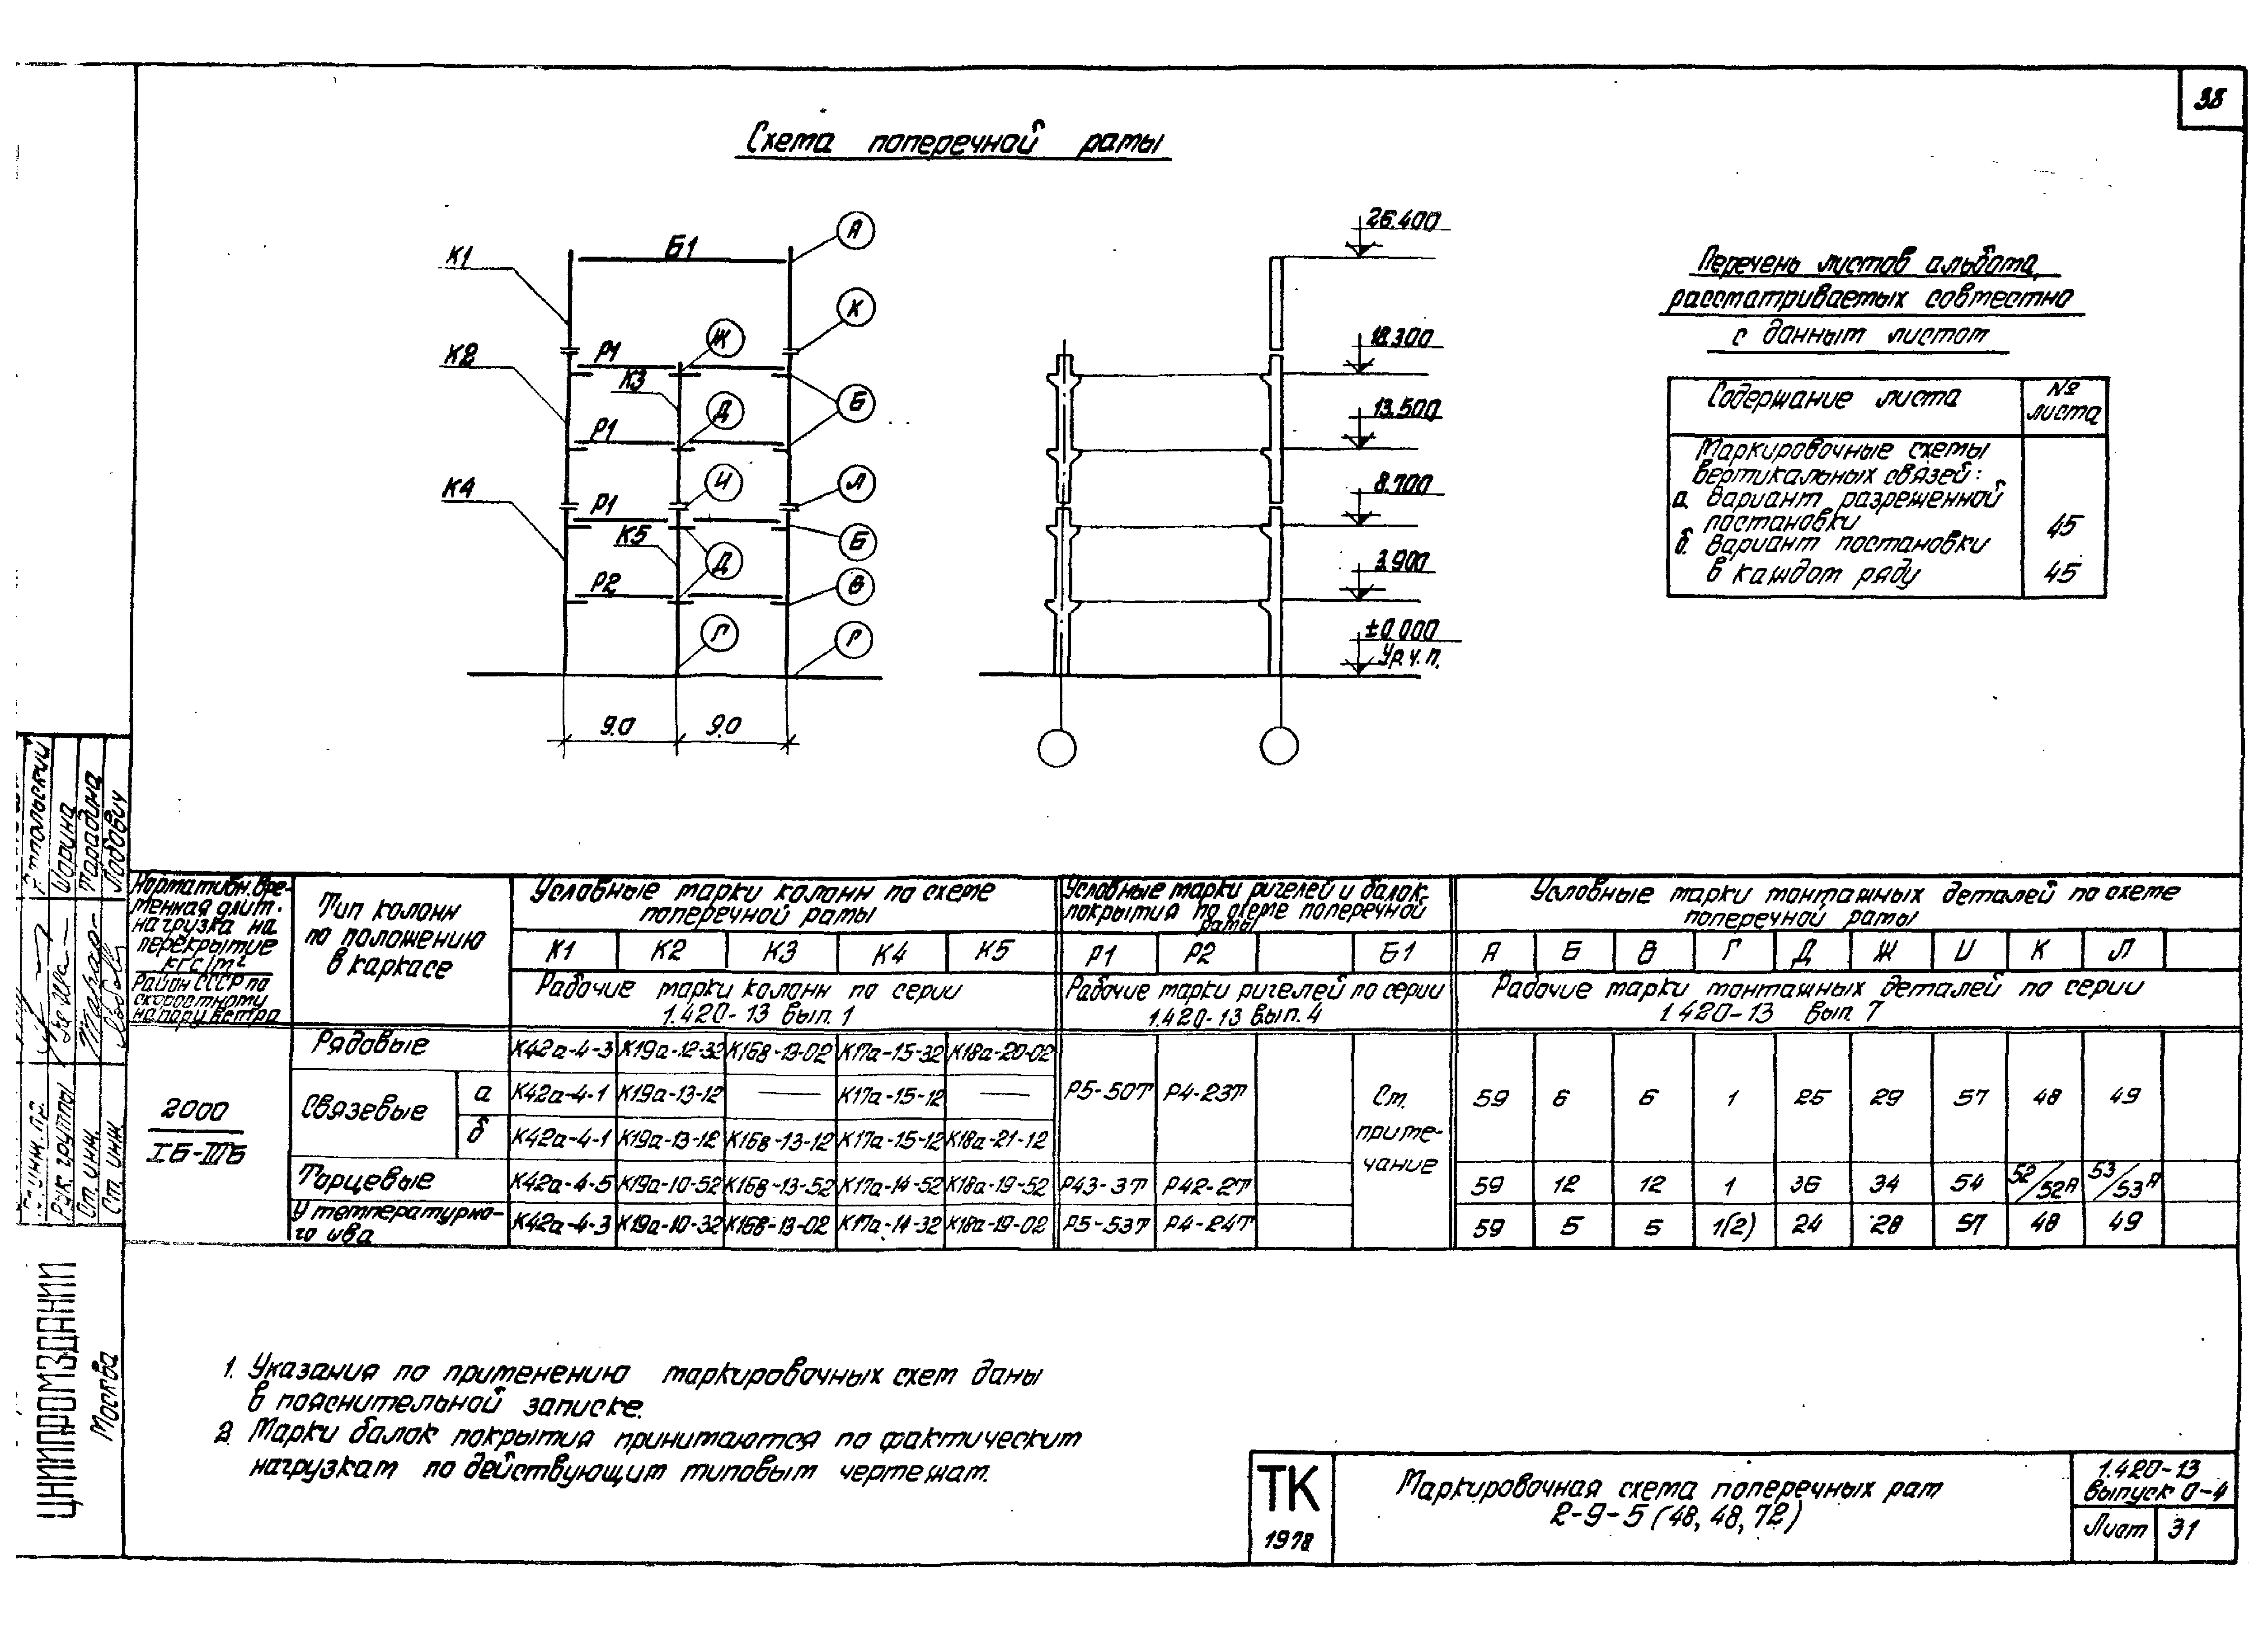 38
Схема поперечной рамы
К1
Б1
А
К
К2
Р1
Ж
К3
Д
Б
Р1
К4
И
Л
Р1
К5
Б
Д
Р2
В
Г
Г
9.0 9.0
26.400
18.300
13.500
8.700
3.900
±0.000
Ур.ч.п.
Перечень листов альбома,
рассматриваемых совместно
с данным листом
Содержание листа № листа
Маркировочные схемы
вертикальных связей:
а. вариант разреженной
постановки 45
б. вариант постановки
в каждом ряду 45
Нормативн. временная длит. нагрузка на перекрытие кгс/м²
Район СССР по скоростному напору ветра
Тип колонн по положению в каркасе
Условные марки колонн по схеме поперечной рамы
Условные марки ригелей и балок покрытия по схеме поперечной рамы
Условные марки монтажных деталей по схеме поперечной рамы
К1 К2 К3 К4 К5 Р1 Р2 Б1 А Б В Г Д Ж И К Л
Рабочие марки колонн по серии 1.420-13 вып. 1
Рабочие марки ригелей по серии 1.420-13 вып. 4
Рабочие марки монтажных деталей по серии 1.420-13 вып. 7
2000
IБ-IIIБ
Рядовые К42а-4-3 К19а-12-32 К16в-13-02 К17а-15-32 К18а-20-02
Связевые
а К42а-4-1 К19а-13-12 — К17а-15-12 —
Р5-50Т Р4-23Т См. примечание 59 6 6 1 25 29 57 48 49
б К42а-4-1 К19а-13-12 К16в-13-12 К17а-15-12 К18а-21-12
Торцевые К42а-4-5 К19а-10-52 К16в-13-52 К17а-14-52 К18а-19-52 Р43-3Т Р42-2Т 59 12 12 1 36 34 54 52/52А 53/53А
У температурного шва К42а-4-3 К19а-10-32 К16в-13-02 К17а-14-32 К18а-19-02 Р5-53Т Р4-24Т 59 5 5 1(2) 24 28 57 48 49
1. Указания по применению маркировочных схем даны
в пояснительной записке.
2. Марки балок покрытия принимаются по фактическим
нагрузкам по действующим типовым чертежам.
ТК
1978
Маркировочная схема поперечных рам
2-9-5 (48, 48, 72)
1.420-13
выпуск 0-4
Лист 31
Шарина
Тарадина
Лодович
Рук. группы
Ст. инж.
Ст. инж.
ЦНИИПРОМЗДАНИЙ
Москва